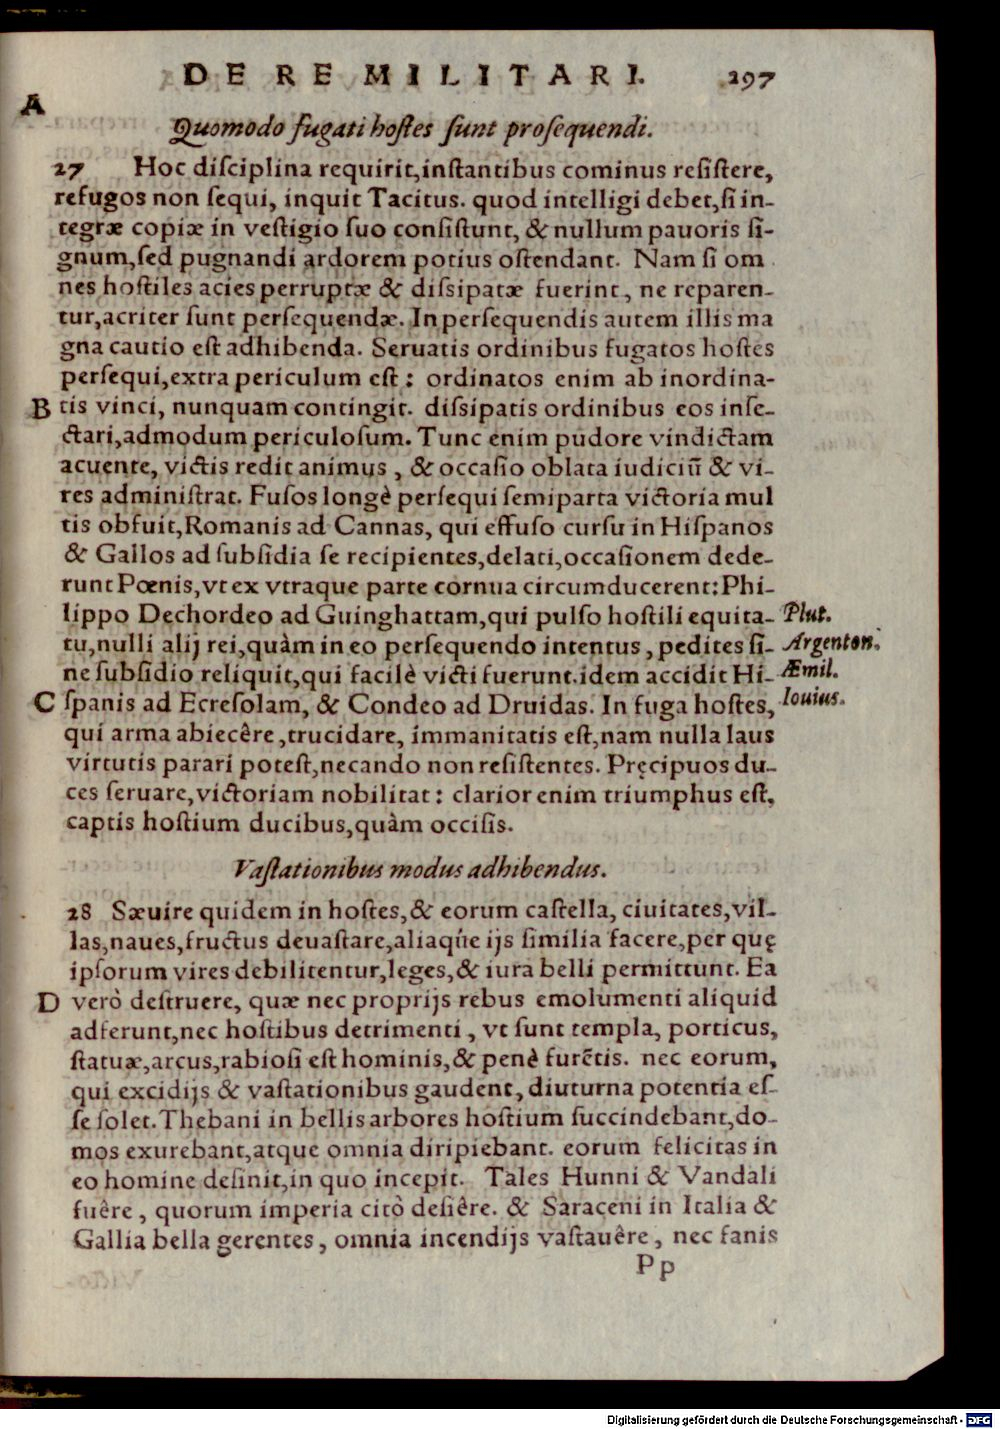 DE RE MILITARI. 297
A
Quomodo fugati hoſtes ſunt proſequendi.
27 Hoc diſciplina requirit,inſtantibus cominus reſiſtere,
refugos non ſequi, inquit Tacitus. quod intelligi debet,ſi in-
tegræ copiæ in veſtigio ſuo conſiſtunt, & nullum pauoris ſi-
gnum,ſed pugnandi ardorem potius oſtendant. Nam ſi om
nes hoſtiles acies perruptæ & diſsipatæ fuerint, ne reparen-
tur,acriter ſunt perſequendæ. In perſequendis autem illis ma
gna cautio eſt adhibenda. Seruatis ordinibus fugatos hoſtes
perſequi,extra periculum eſt: ordinatos enim ab inordina-
B tis vinci, nunquam contingit. diſsipatis ordinibus eos inſe-
ctari,admodum periculoſum. Tunc enim pudore vindictam
acuente, victis redit animus, & occaſio oblata iudiciū & vi-
res adminiſtrat. Fuſos longè perſequi ſemiparta victoria mul
tis obfuit,Romanis ad Cannas, qui effuſo curſu in Hiſpanos
& Gallos ad ſubſidia ſe recipientes,delati,occaſionem dede-
runt Pœnis,vt ex vtraque parte cornua circumducerent:Phi-
lippo Dechordeo ad Guinghattam,qui pulſo hoſtili equita- Plut.
tu,nulli alij rei,quàm in eo perſequendo intentus, pedites ſi- Argenton.
ne ſubſidio reliquit,qui facilè victi fuerunt.idem accidit Hi- Æmil.
C ſpanis ad Ecreſolam, & Condeo ad Druidas. In fuga hoſtes, Iouius.
qui arma abiecêre,trucidare, immanitatis eſt,nam nulla laus
virtutis parari poteſt,necando non reſiſtentes. Pręcipuos du-
ces ſeruare,victoriam nobilitat: clarior enim triumphus eſt,
captis hoſtium ducibus,quàm occiſis.
Vaſtationibus modus adhibendus.
28 Sæuire quidem in hoſtes,& eorum caſtella, ciuitates,vil-
las,naues,fructus deuaſtare,aliaq́ue ijs ſimilia facere,per quę
ipſorum vires debilitentur,leges,& iura belli permittunt. Ea
D verò deſtruere, quæ nec proprijs rebus emolumenti aliquid
adferunt,nec hoſtibus detrimenti, vt ſunt templa, porticus,
ſtatuæ,arcus,rabioſi eſt hominis,& penè furẽtis. nec eorum,
qui excidijs & vaſtationibus gaudent, diuturna potentia eſ-
ſe ſolet. Thebani in bellis arbores hoſtium ſuccindebant,do-
mos exurebant,atque omnia diripiebant. eorum felicitas in
eo homine deſinit,in quo incepit. Tales Hunni & Vandali
fuêre, quorum imperia citò deſiêre. & Saraceni in Italia &
Gallia bella gerentes, omnia incendijs vaſtauêre, nec fanis
Pp
Digitalisierung gefördert durch die Deutsche Forschungsgemeinschaft - DFG